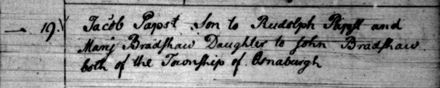 — 19. Jacob Papst Son to Rudolph Papst and
Mary Bradshaw Daughter to John Bradshaw
both of the Township of Osnaburgh